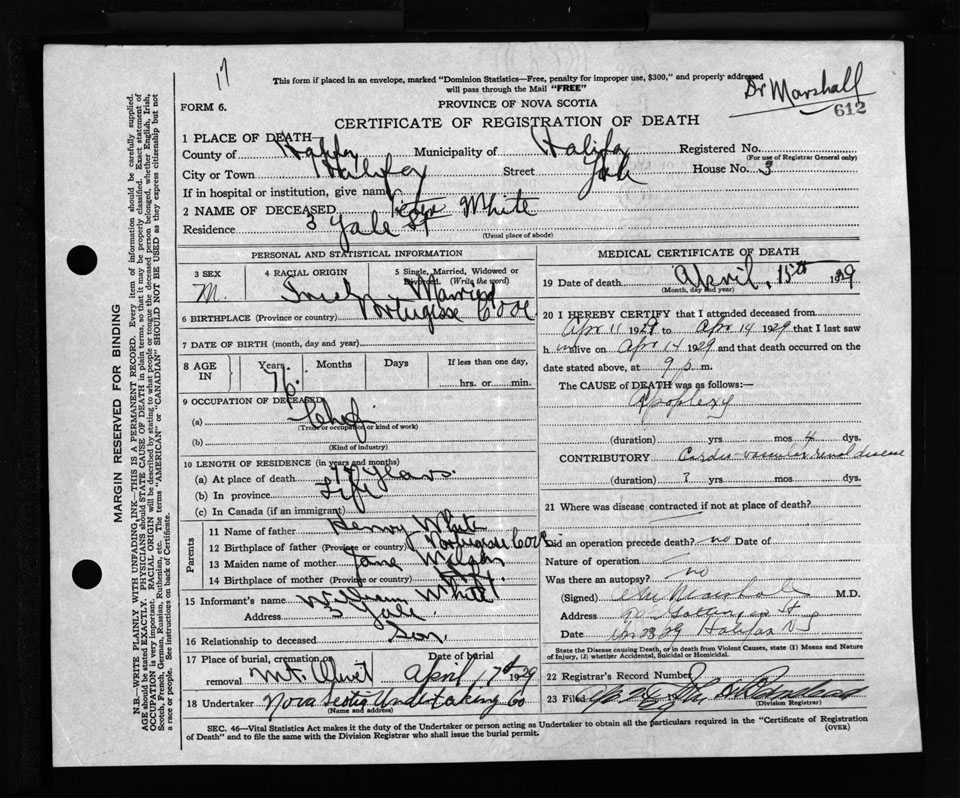 17
This form if placed in an envelope, marked "Dominion Statistics—Free, penalty for improper use, $300," and properly addressed
will pass through the Mail "FREE"
Dr Marshall
612
FORM 6.
PROVINCE OF NOVA SCOTIA
CERTIFICATE OF REGISTRATION OF DEATH
1 PLACE OF DEATH
County of Halifax Municipality of Halifax Registered No.
(For use of Registrar General only)
City or Town Halifax Street Yale House No. 3
If in hospital or institution, give name
2 NAME OF DECEASED White
Residence 3 Yale St
(Usual place of abode)
PERSONAL AND STATISTICAL INFORMATION
3 SEX M.
4 RACIAL ORIGIN Irish
5 Single, Married, Widowed or Divorced. (Write the word) Married
6 BIRTHPLACE (Province or country) Portugese Cove
7 DATE OF BIRTH (month, day and year)
8 AGE IN Years 76. Months Days If less than one day,
hrs. or min.
9 OCCUPATION OF DECEASED
(a) Chef
(Trade or occupation or kind of work)
(b)
(Kind of industry)
10 LENGTH OF RESIDENCE (in years and months)
(a) At place of death Years.
(b) In province Life
(c) In Canada (if an immigrant)
Parents
11 Name of father Henry White
12 Birthplace of father (Province or country) Portugese Cove
13 Maiden name of mother Jane
14 Birthplace of mother (Province or country)
15 Informant's name William White
Address 3 Yale
16 Relationship to deceased Son
17 Place of burial, cremation or removal Mt. Olivet Date of burial April 17th 1929
18 Undertaker Nova Scotia Undertaking Co
(Name and address)
MEDICAL CERTIFICATE OF DEATH
19 Date of death April, 15th 1929
(Month, day and year)
20 I HEREBY CERTIFY that I attended deceased from
Apr 11 1929 to Apr 14 1929 that I last saw
h im alive on Apr 14 1929 and that death occurred on the
date stated above, at 9 p. m.
The CAUSE of DEATH was as follows:—
Apoplexy
(duration) yrs. mos 4 dys.
CONTRIBUTORY Cardio-vascular renal disease
(duration) ? yrs. mos. dys.
21 Where was disease contracted if not at place of death?
Did an operation precede death? no Date of
Nature of operation
Was there an autopsy? no
(Signed) Marshall M.D.
Address St
Date 29 Halifax NS
State the Disease causing Death, or in death from Violent Causes, state (1) Means and Nature
of Injury, (2) whether Accidental, Suicidal or Homicidal.
22 Registrar's Record Number
23 Filed
(Division Registrar)
SEC. 46—Vital Statistics Act makes it the duty of the Undertaker or Person acting as Undertaker to obtain all the particulars required in the "Certificate of Registration
of Death" and to file the same with the Division Registrar who shall issue the burial permit.
(OVER)
MARGIN RESERVED FOR BINDING
N.B.—WRITE PLAINLY WITH UNFADING INK—THIS IS A PERMANENT RECORD. Every item of information should be carefully supplied.
AGE should be stated EXACTLY. PHYSICIANS should STATE CAUSE OF DEATH in plain terms, so that it may be properly classified. Exact statement of
OCCUPATION is very important. RACIAL ORIGIN will be described by stating to what people or tongue the deceased person belonged, whether English, Irish,
Scotch, French, German, Russian, Ruthenian, etc. The terms "AMERICAN" or "CANADIAN" SHOULD NOT BE USED as they express citizenship but not
a race or people. See instructions on back of Certificate.